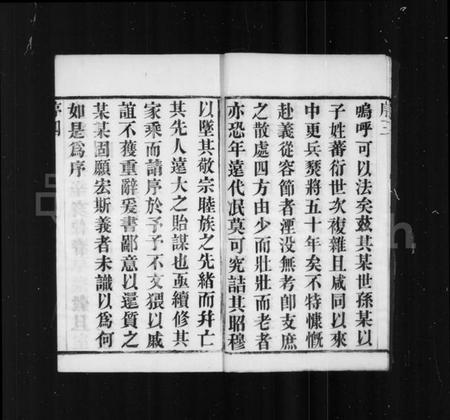 序三
嗚呼可以法矣茲其某世孫某以
子姓蕃衍世次複雜且咸同以來
中更兵燹將五十年矣不特慷慨
赴義從容節者湮没無考卽支庶
之散處四方由少而壯壯而老者
亦恐年遠代泯莫可究詰其昭穆
以墜其敬宗睦族之先緒而幷亡
其先人遠大之貽謀也亟續修其
家乘而請序於予予不文猥以戚
誼不獲重辭爰書鄙意以還質之
某某固願宏斯義者未識以爲何
如是爲序
序四